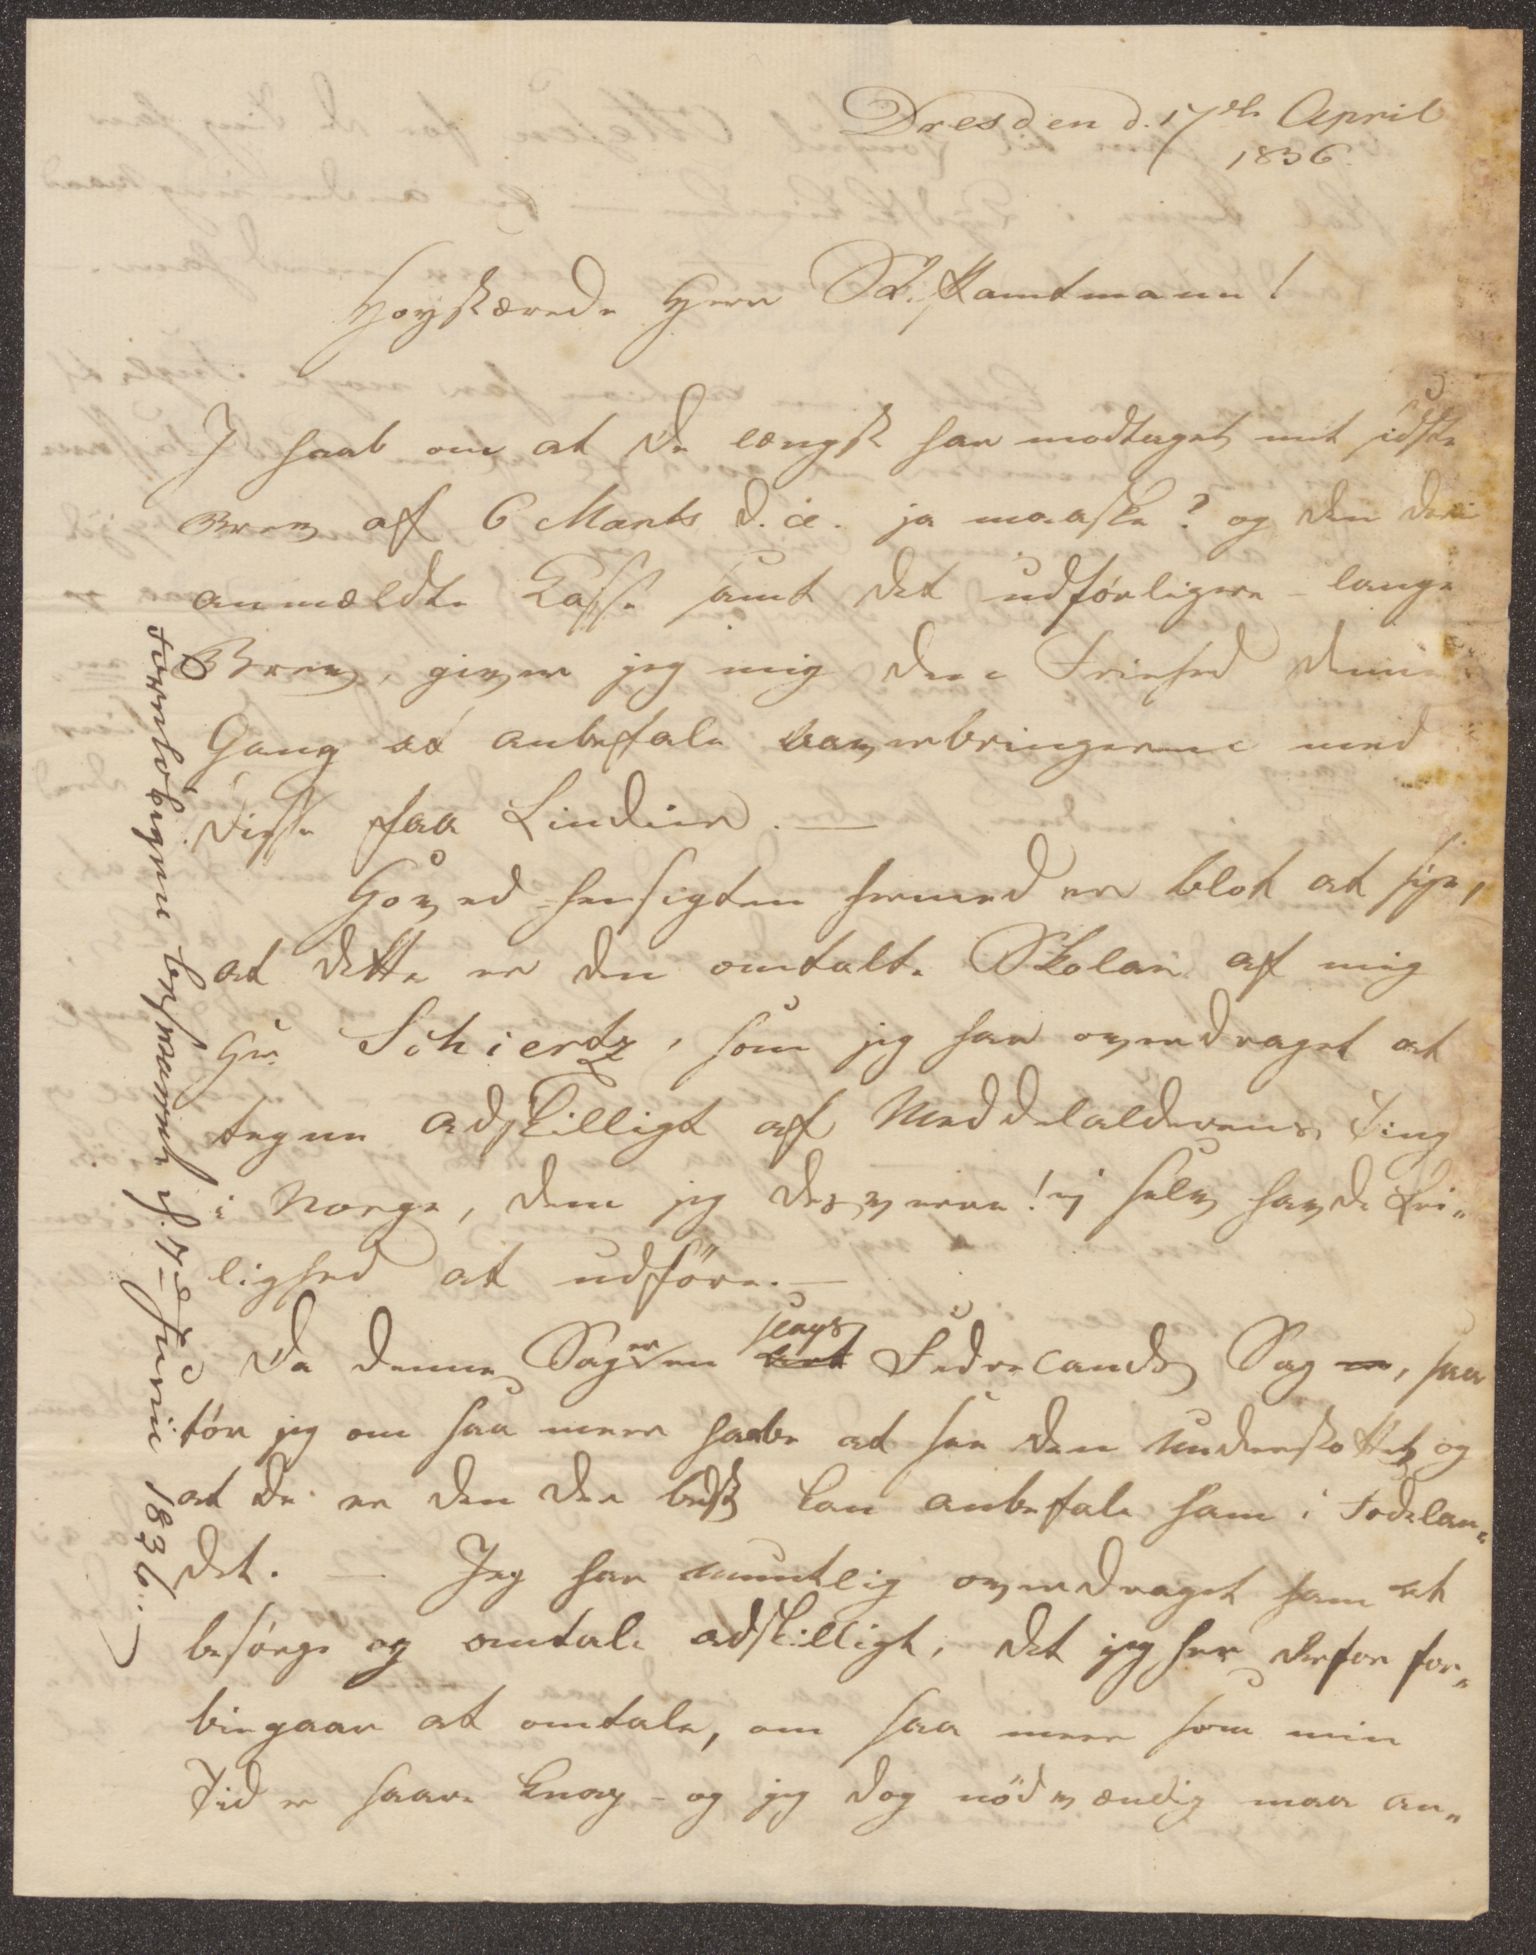 Dresden d. 17de April
1836.
Høystærede Herr Stiftamtmann!
I Haab om at De længst har modtaget mit sidste
Brev af 6 Marts d. a. ja maaske? og den deri
anmældte Kasse samt det udførligere lange
Brev, giver jeg mig den Friehed denne
Gang at anbefale Overbringeren med
disse faa Liniier. —
Hoved-hensigten hermed er blot at sige,
at dette er den omtalte Skolar af mig
Hr. Schiertz, som jeg har overdraget at
tegne adskilligt af Meddelalderens Ting
i Norge, dem jeg desverre! ej selv havde Lei„
lighed at udføre. —
Da denne Sag er en Fædrelands Sag, saa
tør jeg om saa meer haabe at see den understøttet, og
at De er den der bedst kan anbefale ham i Fødelan„
det. — Jeg har mundtlig overdraget ham at
besørge og omtale adskilligt, det jeg her derfor for„
biegaar at omtale, om saa meer som min
Tid er saare knap - og jeg dog nødvændig maa an„
Foreløbigen besvaret d. 7de Junii 1836.